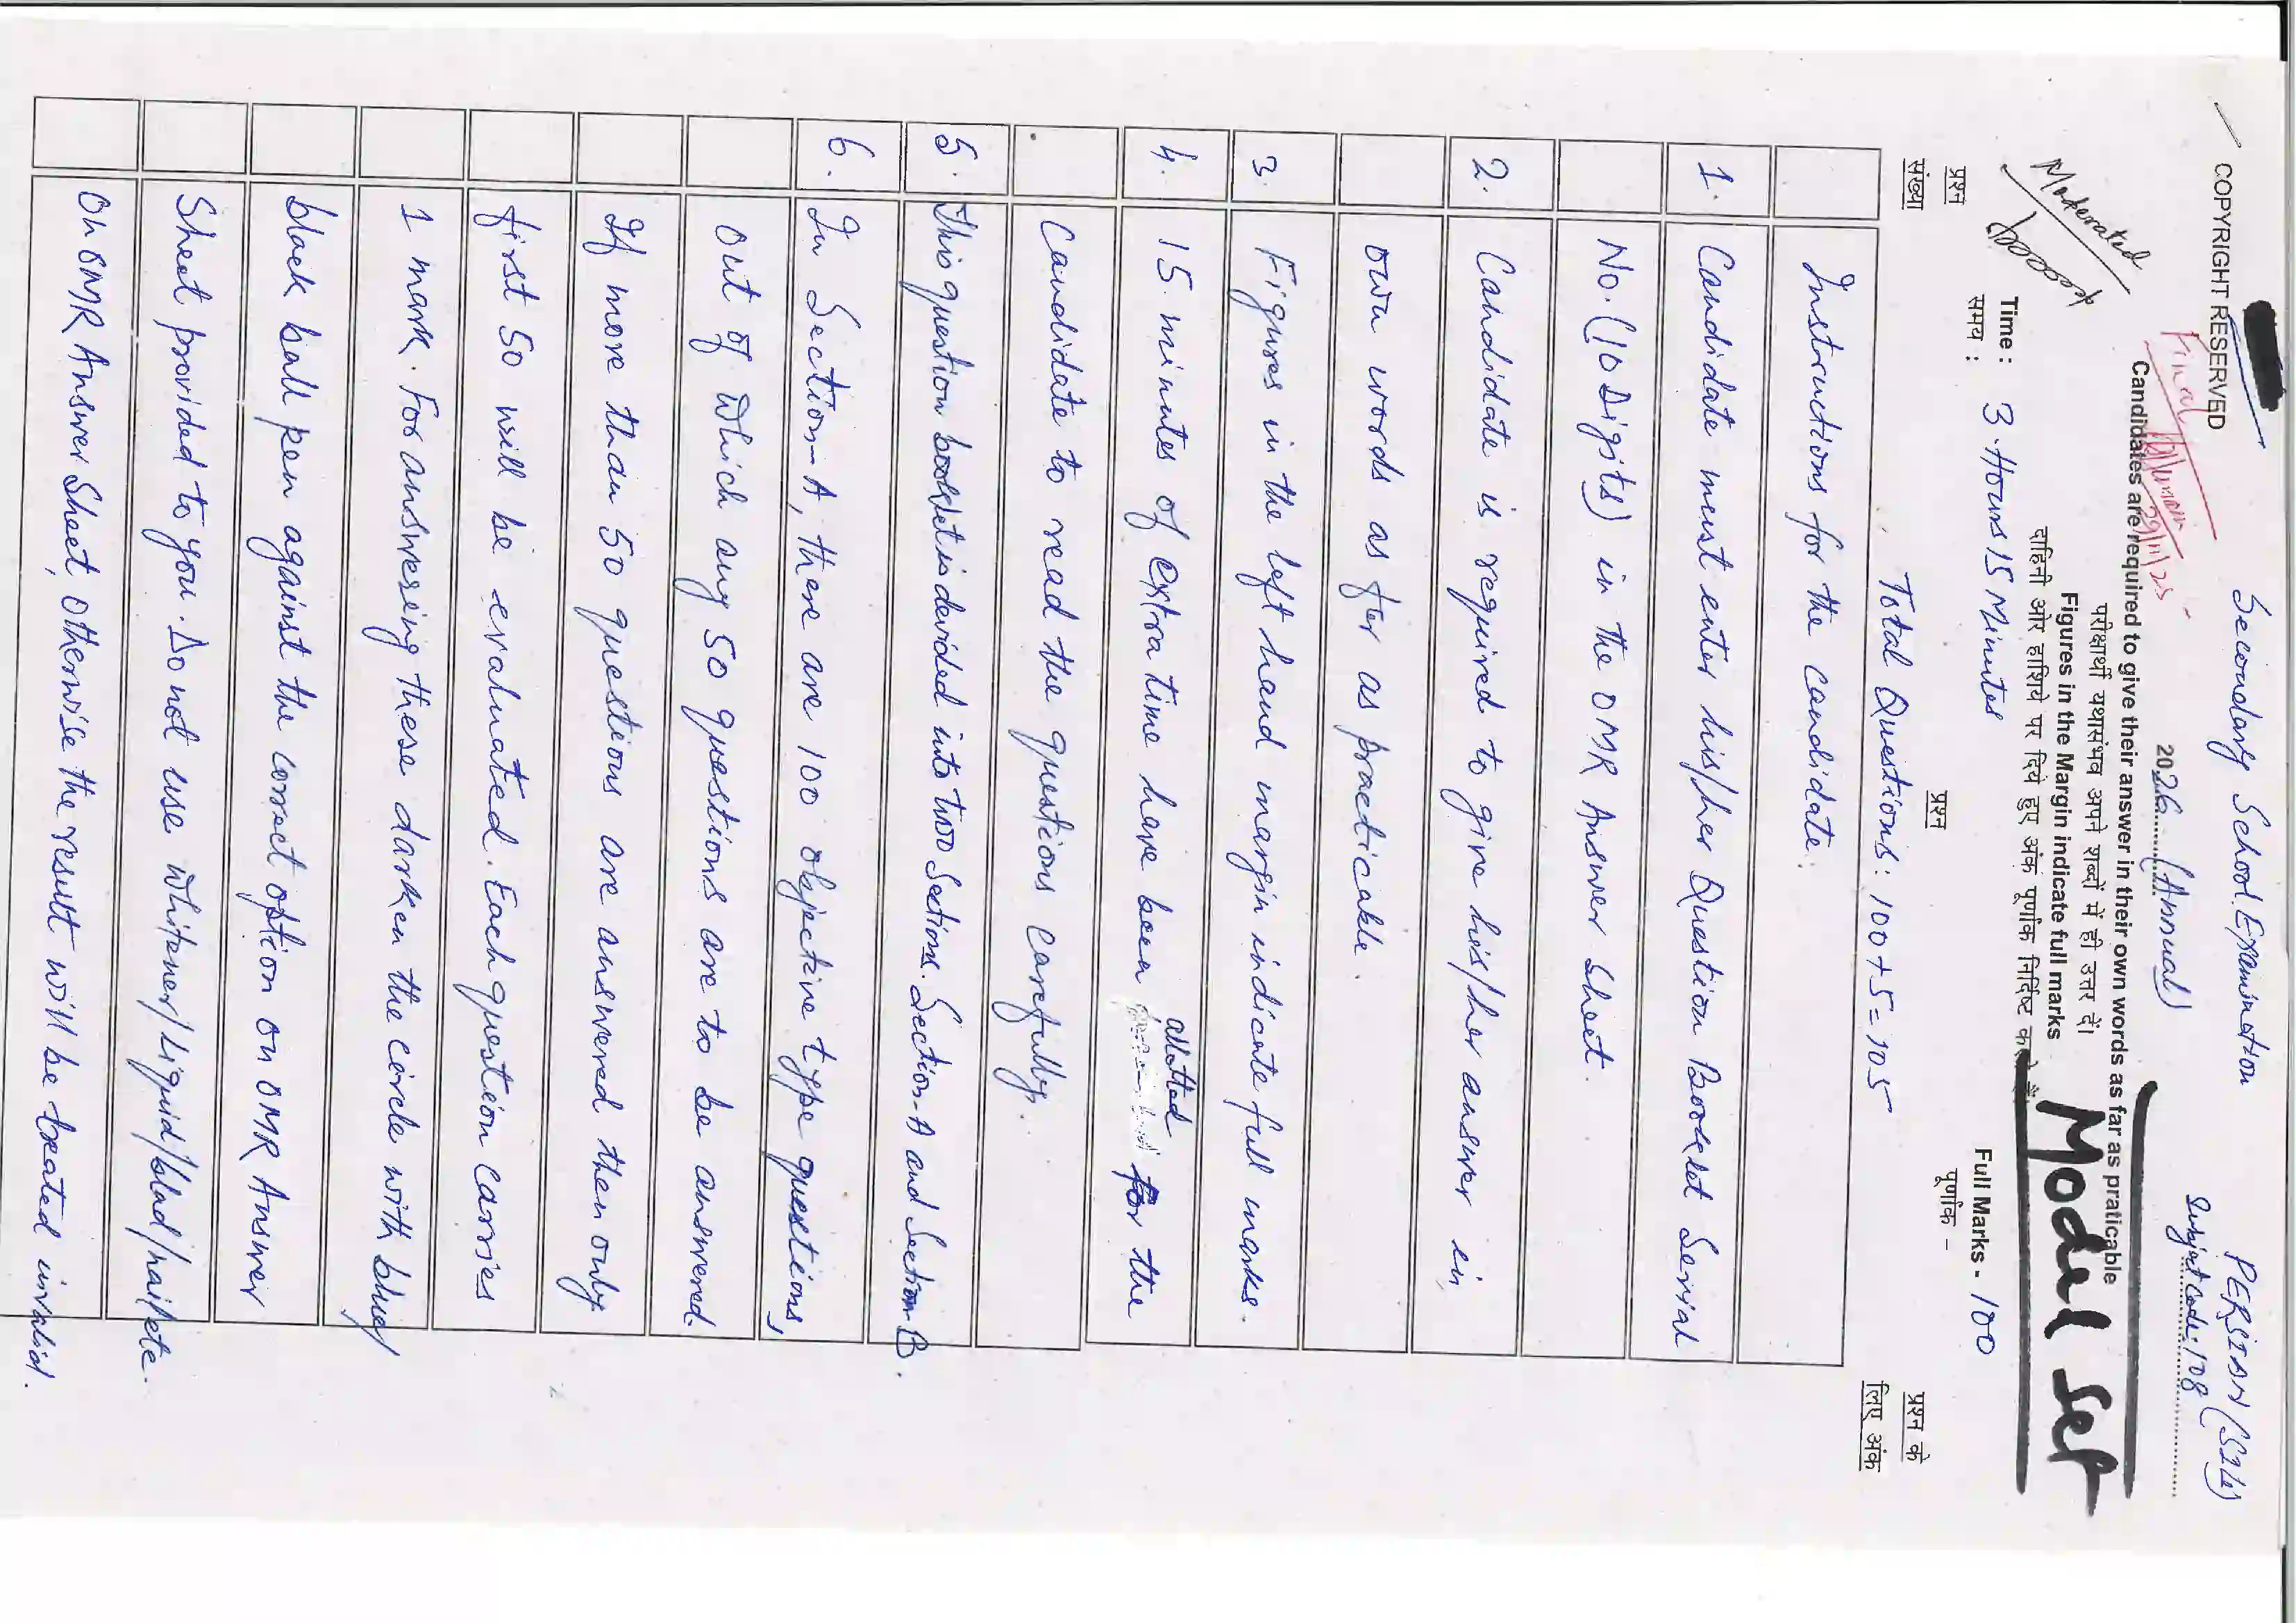 COPYRIGHT RESERVED
Secondary School Examination
PERSIAN (SIL)
2026 (Annual)
Subject Code: 108
Final
29/11/25
Candidates are required to give their answer in their own words as far as praticable
परीक्षार्थी यथासंभव अपने शब्दों में ही उत्तर दें।
Figures in the Margin indicate full marks
दाहिनी ओर हाशिये पर दिये हुए अंक पूर्णांक निर्दिष्ट करते हैं।
Model Set
Moderated
Time: 3 Hours 15 Minutes
समय :
Full Marks - 100
पूर्णांक –
प्रश्न संख्या
प्रश्न
प्रश्न के लिए अंक
Total Questions: 100+5=105
Instructions for the candidate:
1. Candidate must enter his/her Question Booklet Serial
No. (10 Digits) in the OMR Answer Sheet.
2. Candidate is required to give his/her answer in
own words as far as practicable.
3. Figures in the left hand margin indicate full marks.
4. 15 minutes of extra time have been allotted for the
Candidate to read the questions carefully.
5. This question booklet is devided into two Sections. Section-A and Section B.
6. In Section-A, there are 100 objective type questions,
out of which any 50 questions are to be answered.
If more than 50 questions are answered then only
first 50 will be evaluated. Each question carries
1 mark. For answering these darken the circle with blue/
black ball pen against the correct option on OMR Answer
Sheet provided to you. Do not use Whitener/Liquid/blad/nail etc.
on OMR Answer Sheet, otherwise the result will be treated invalid.